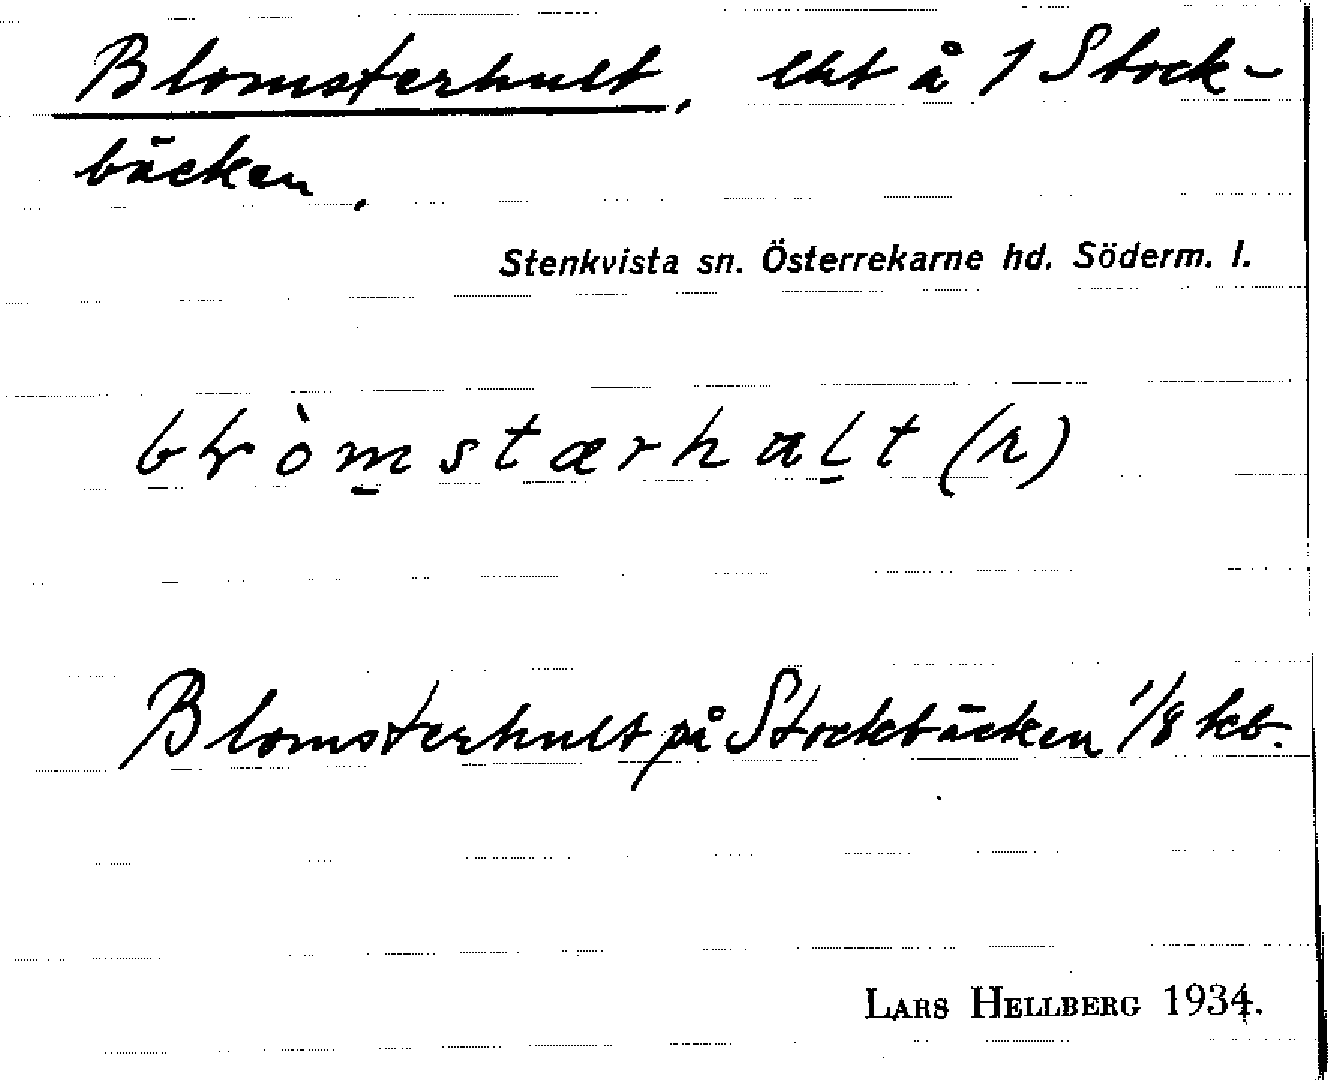 Blomsterhult, lht å 1 Stock-
bäcken.
Stenkvista sn. Österrekarne hd. Söderm. l.
Blomsterhult på Stockbäcken 1/8 kb.
LARS HELLBERG 1934.